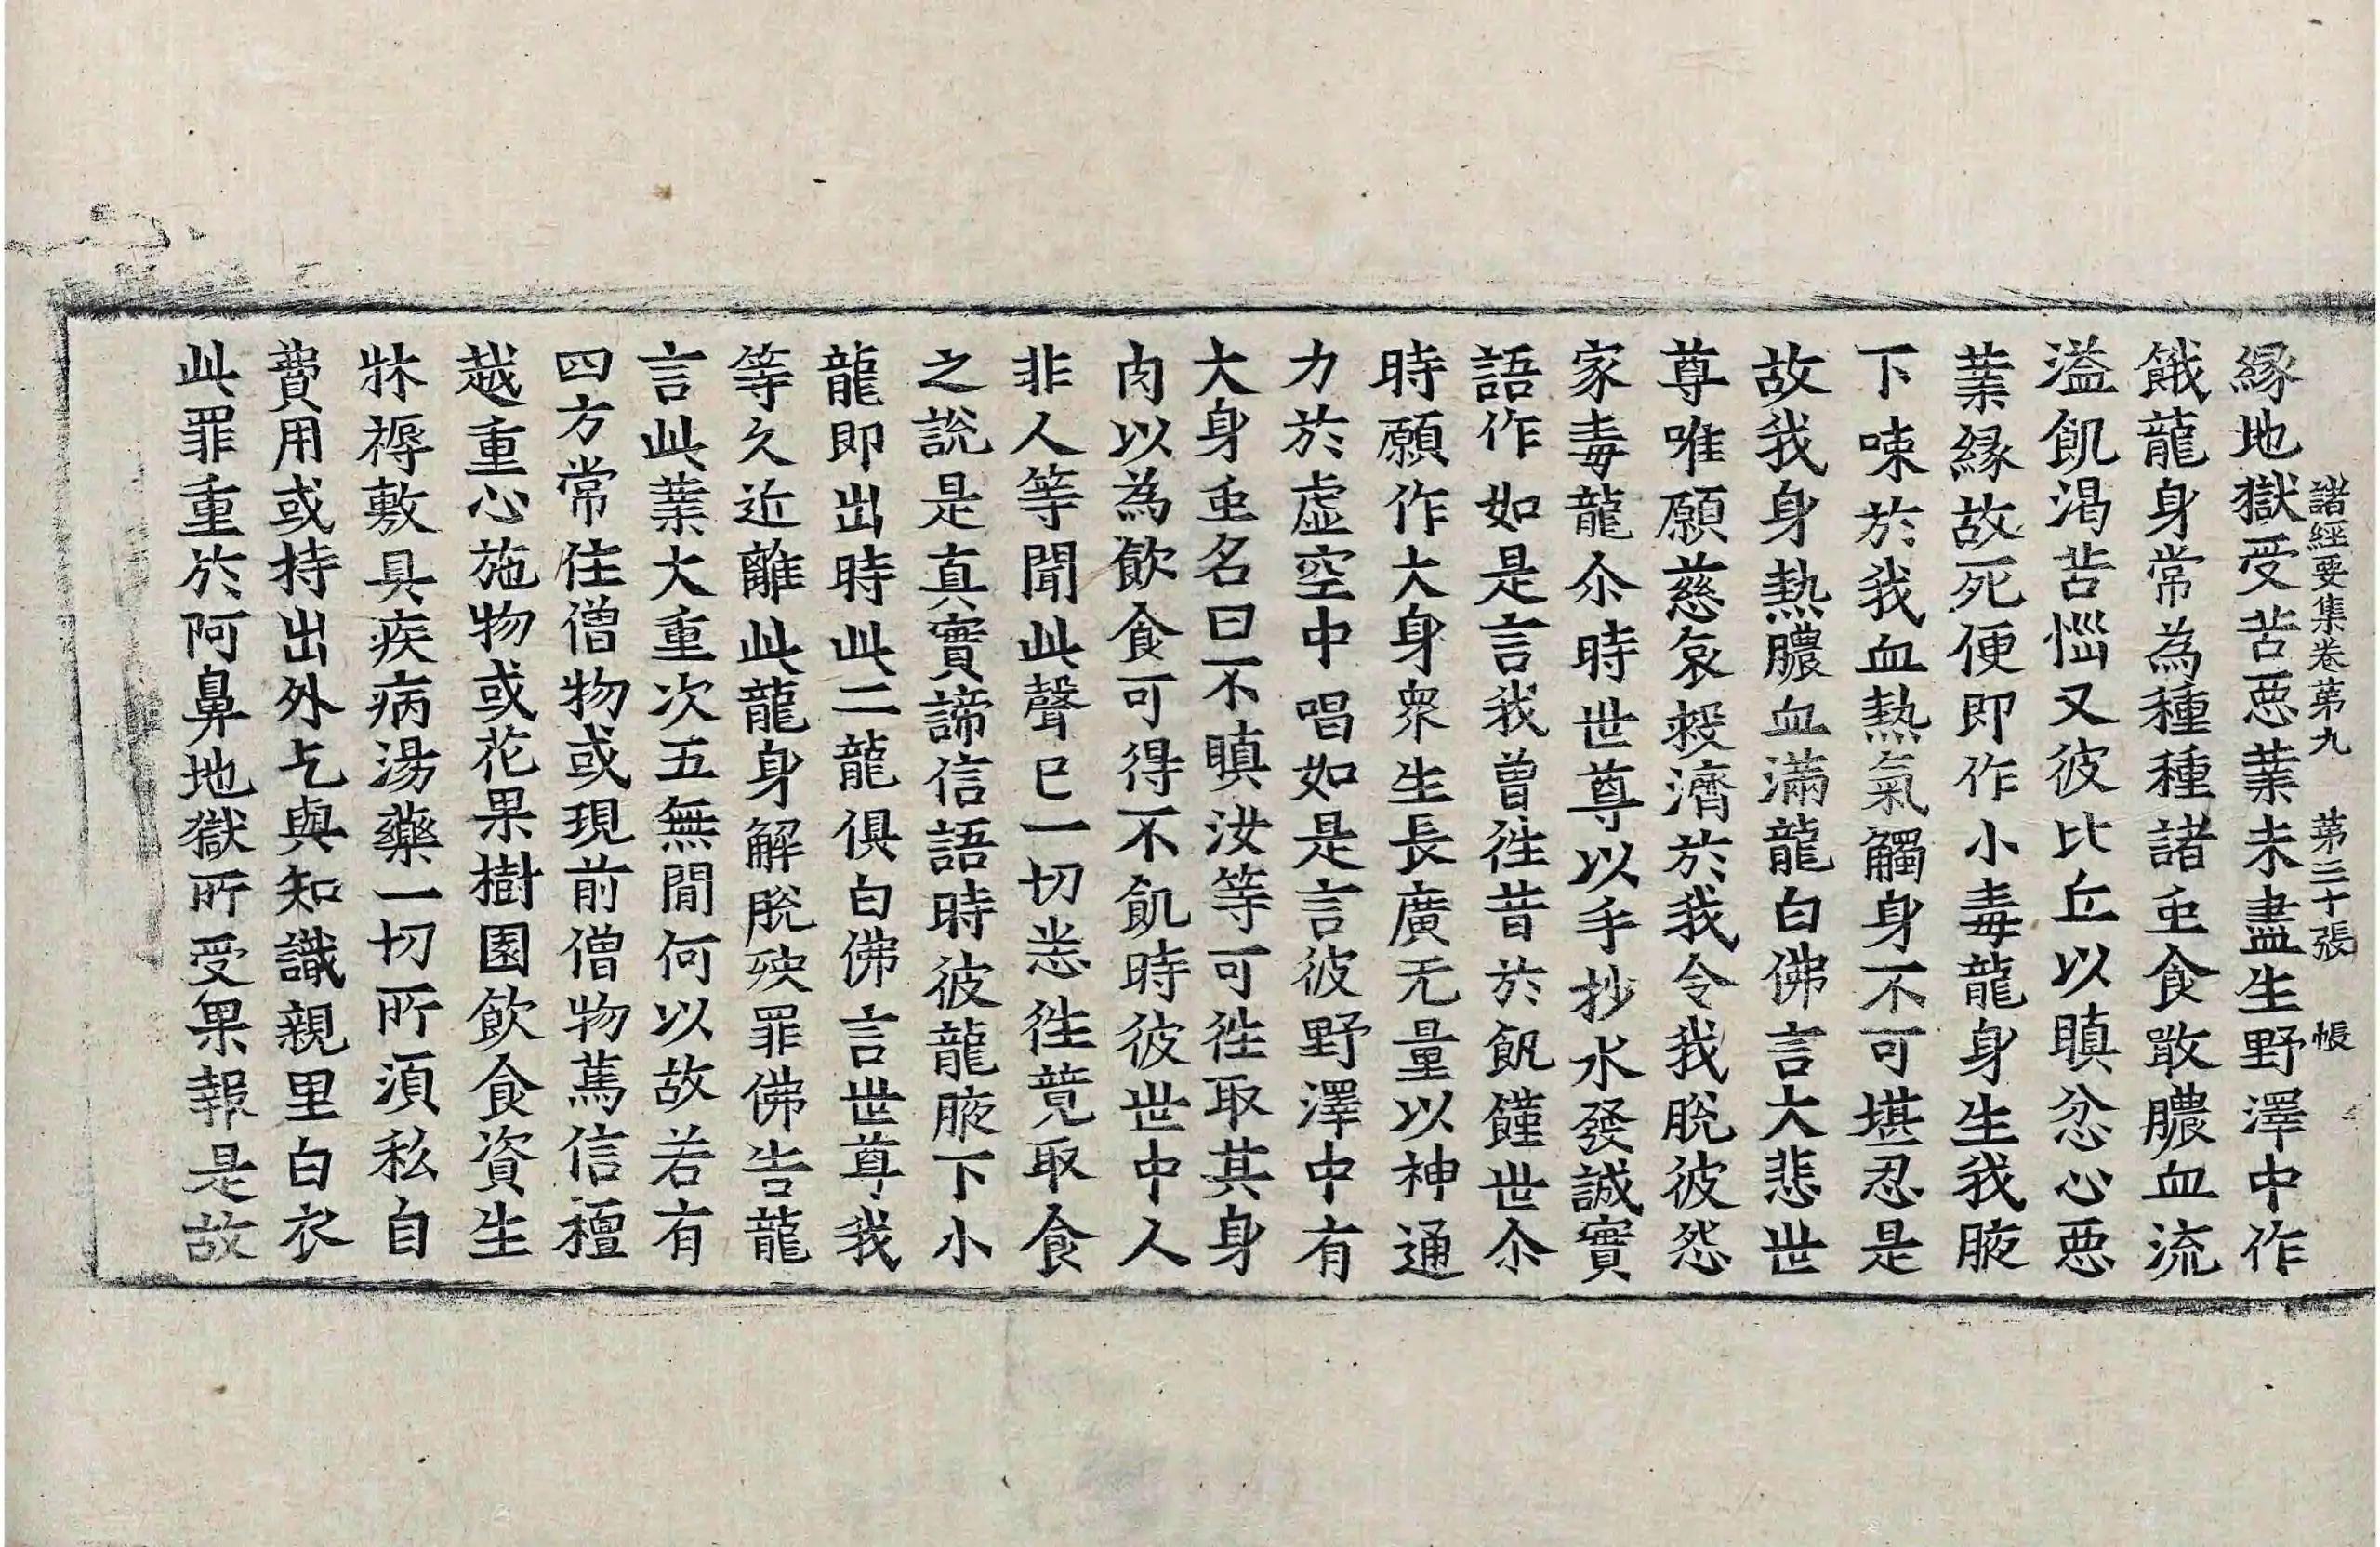 諸經要集卷苐九　苐三十張　帳
縁地獄受苦惡業未盡生野澤中作
餓龍身常為種種諸䖝食噉膿血流
溢飢渴苦惱又彼比丘以瞋忿心惡
業縁故死便即作小毒龍身生我腋
下𠲿於我血熱氣觸身不可堪忍是
故我身熱膿血滿龍白佛言大悲世
尊唯願慈哀救濟於我令我脫彼怨
家毒龍尒時世尊以手抄水發誠實
語作如是言我曾往昔於飢饉世尒
時願作大身衆生長廣无量以神通
力於虛空中唱如是言彼野澤中有
大身䖝名曰不瞋汝等可往取其身
肉以為飲食可得不飢時彼世中人
非人等聞此聲已一切悉往竟取食
之說是真實諦信語時彼龍腋下小
龍即出時此二龍俱白佛言世尊我
等久近離此龍身解脫殃罪佛告龍
言此業大重次五無閒何以故若有
四方常住僧物或現前僧物萬信檀
越重心施物或花果樹園飲食資生
牀褥敷具疾病湯藥一切所須私自
費用或持出外乞與知識親里白衣
此罪重於阿鼻地獄所受果報是故